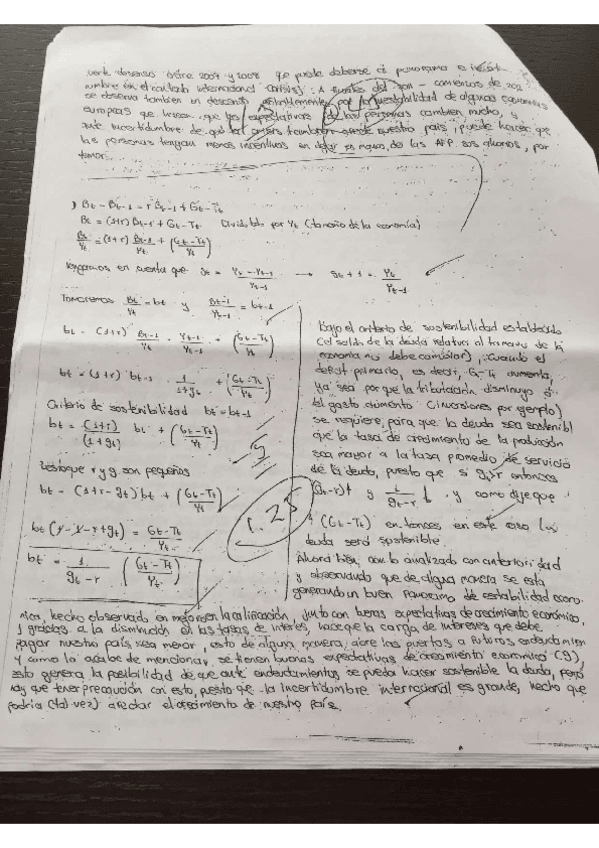 entre 2007 y 2008 que puede deberse al panorama e
internacional (crisis). A fuentes del 2011 - comienzos de 2012
se observa tambien un descenso por la inestabilidad de algunas economias
europeas que hacen que las expectativas de las personas cambien mucho, y
ante incertidumbre de que nuestro país, puede hacer que
las personas tengan menos incentivos en dejar en manos de las AFP sus ahorros, por
temor.
) Bt - Bt-1 = r Bt-1 + Gt - Tt
Bt = (1+r) Bt-1 + Gt - Tt Dividido por Yt (tamaño de la economía)
Bt/Yt = (1+r) Bt-1/Yt + (Gt - Tt/Yt)
Tengamos en cuenta que gt = Yt - Yt-1/Yt-1 → gt + 1 = Yt/Yt-1
Tomaremos Bt/Yt = bt y Bt-1/Yt-1 = bt-1
bt = (1+r) Bt-1/Yt-1 · Yt-1/Yt + (Gt - Tt/Yt)
bt = (1+r) bt-1 1/1+gt + (Gt - Tt/Yt)
Criterio de sostenibilidad bt = bt-1
bt = (1+r)/(1+gt) bt + (Gt - Tt/Yt)
r y g son pequeños
bt = (1+r-gt) bt + (Gt - Tt/Yt)
bt (1-1-r+gt) = Gt - Tt/Yt
bt = 1/gt - r (Gt - Tt/Yt)
1.25
Bajo el criterio de sostenibilidad establecido
(el saldo de la deuda relativo al tamaño de la
economía no debe cambiar), cuando el
deficit primario, es decir, Gt-Tt aumenta,
ya sea por que la tributación disminuyo o
el gasto aumento (inversiones por ejemplo)
se requiere, para que la deuda sea sostenibl
que la tasa de crecimiento de la producción
sea mayor a la tasa promedio de servicio
de la deuda, puesto que si gt>r entonces
(gt-r)↑ y 1/gt-r ↓ y como dije que
↑ (Gt-Tt) entonces, en este caso la
deuda será sostenible.
Ahora bien, con lo analizado con anterioridad
y observando que de alguna manera se esta
generando un buen panorama de estabilidad econo-
mica, hecho observado en mejor en la calificación, junto con buenas expectativas de crecimiento económico,
y gracias a la disminución en las tasas de interés, hace que la carga de intereses que debe
pagar nuestro país sea menor, esto de alguna manera, abre las puertas a futuros endeudamien
y como lo acabe de mencionar, se tienen buenas expectativas de crecimiento económico (g),
esto genera la posibilidad de que ante endeudamientos se pueda hacer sostenible la deuda, pero
hay que tener precaución con esto, puesto que la incertidumbre internacional es grande, hecho que
podria (tal vez) afectar el crecimiento de nuestro país.